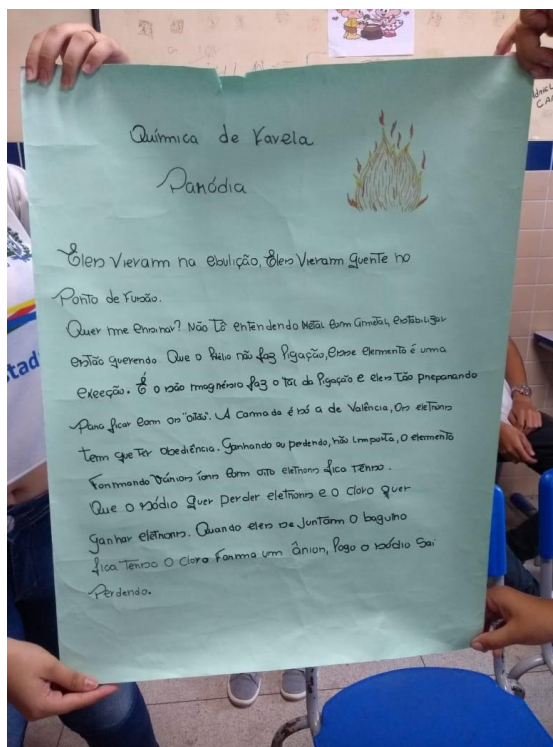 Química de Favela
Paródia
Eles Vieram na ebulição, Eles Vieram quente no
Ponto de Fusão.
Quer me ensinar? Não Tô entendendo Metal com Ametal, estabilizar
estão querendo. Que o Hélio não faz ligação, esse elemento é uma
exceção. É o são magnésio faz o tal da ligação e eles Tão preparando
Para ficar com os "oitão". A camada é só a de Valência, Os eletrons
tem que Ter obediência. Ganhando ou perdendo, não Importa, o elemento
Formando Vários íons com oito eletrons fica Tenso.
Que o sódio quer perder eletrons e o cloro quer
ganhar eletrons. Quando eles se Juntam O bagulho
fica Tenso O Cloro Forma um ânion, logo o sódio Sai
Perdendo.
tad